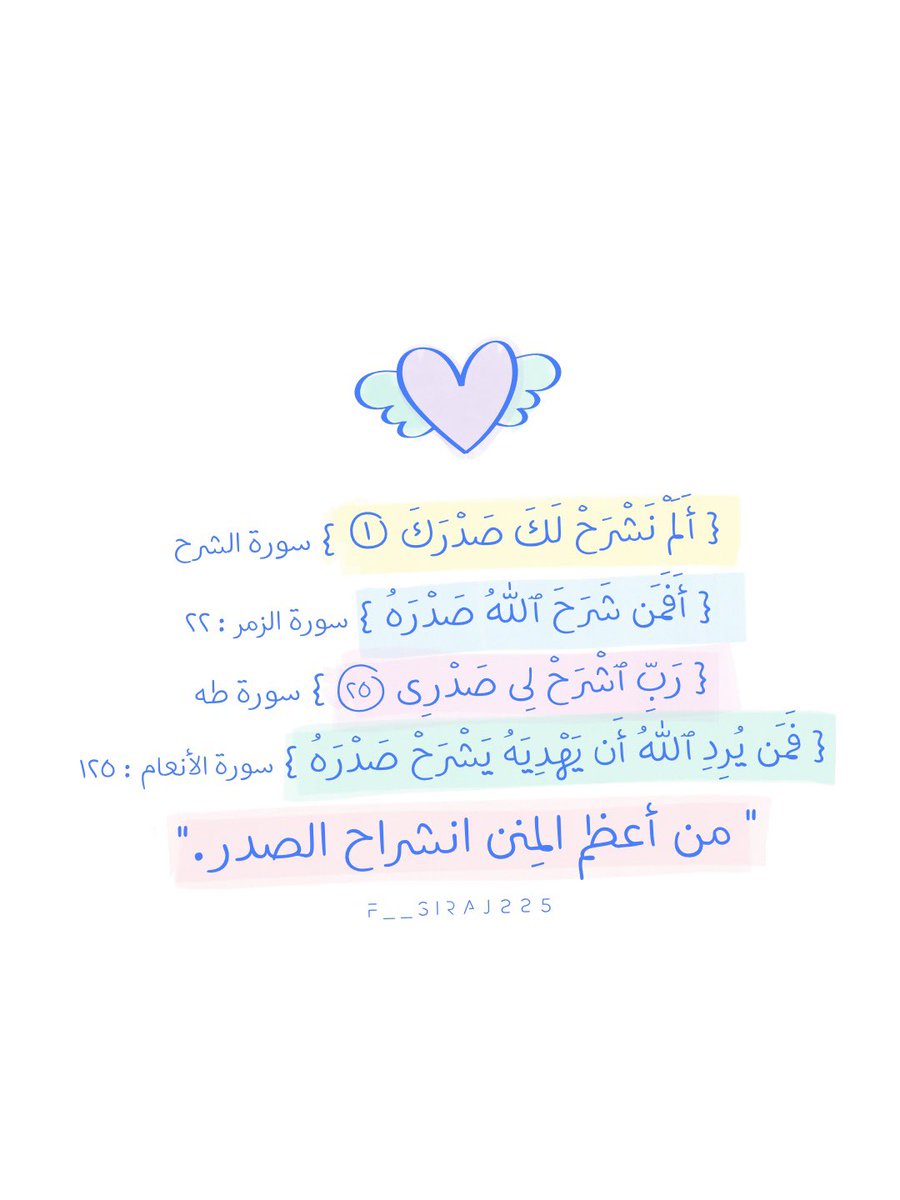 { أَلَمْ نَشْرَحْ لَكَ صَدْرَكَ ١ } سورة الشرح
{ أَفَمَن شَرَحَ ٱللَّهُ صَدْرَهُ } سورة الزمر : ٢٢
{ رَبِّ ٱشْرَحْ لِى صَدْرِى ٢٥ } سورة طه
{ فَمَن يُرِدِ ٱللَّهُ أَن يَهْدِيَهُ يَشْرَحْ صَدْرَهُ } سورة الأنعام : ١٢٥
" من أعظم المِنن انشراح الصدر."
F__SIRAJ225